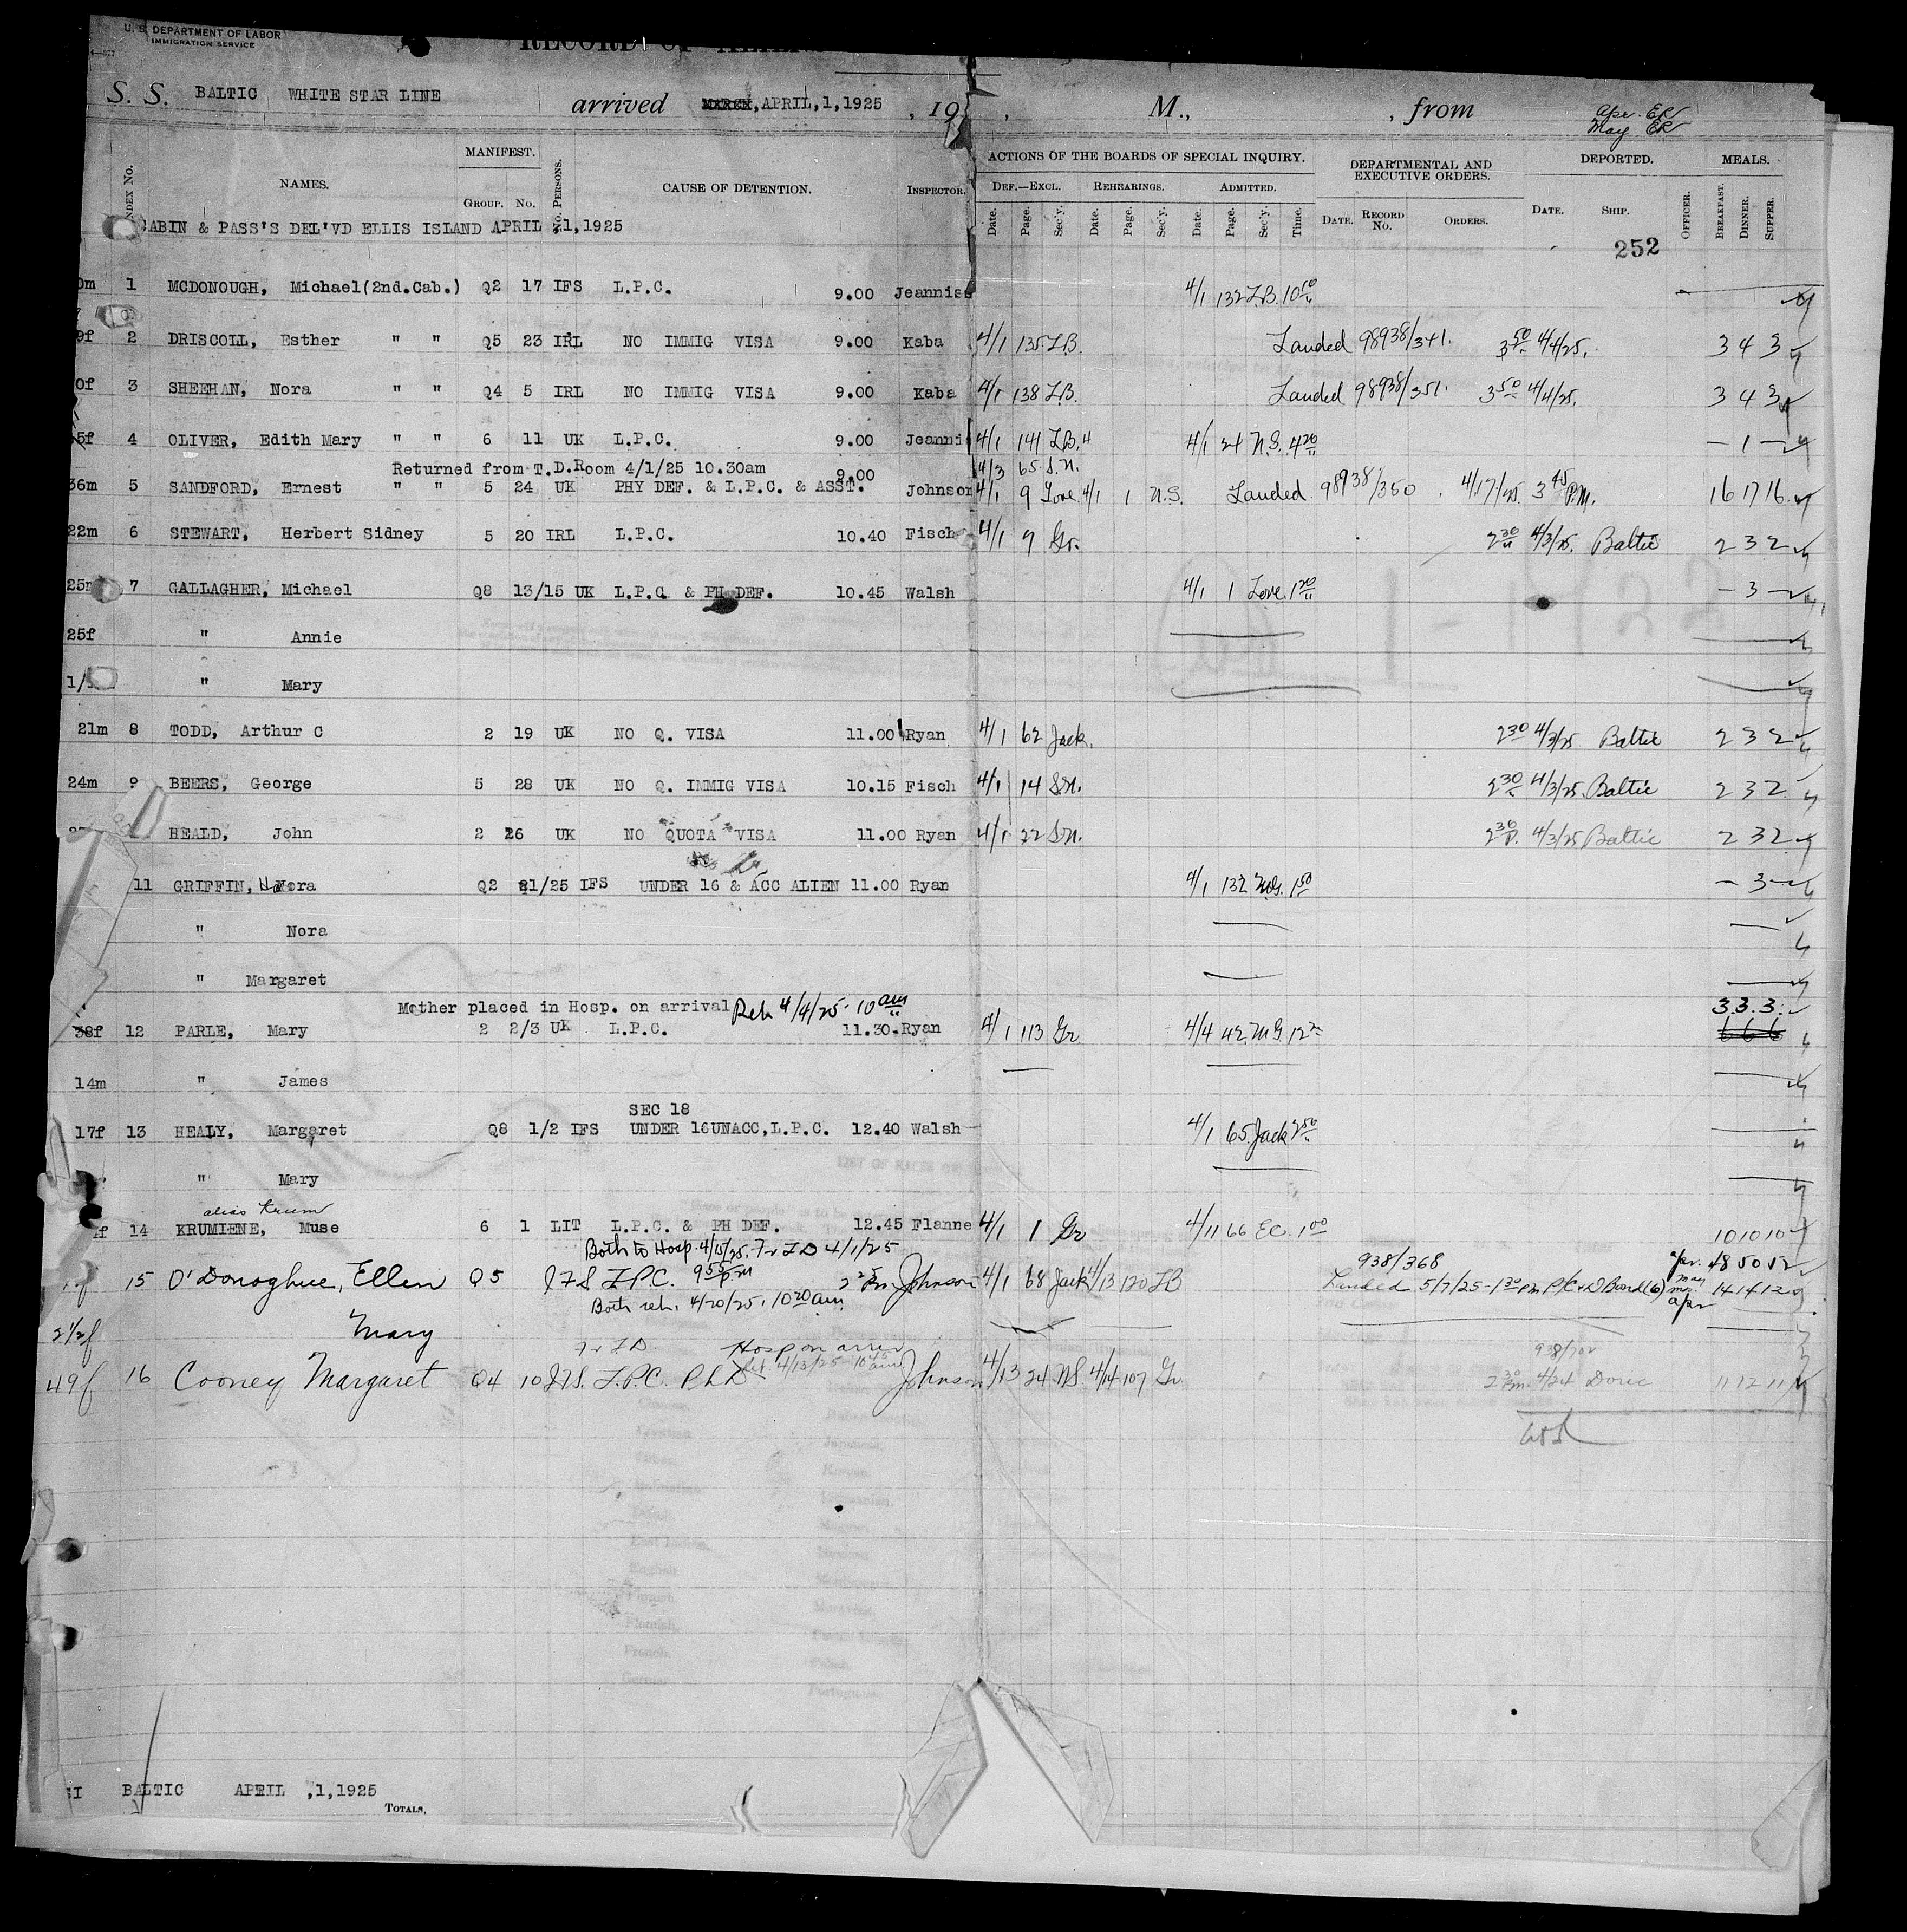 U. S. DEPARTMENT OF LABOR
IMMIGRATION SERVICE
RECORD OF
S. S. BALTIC WHITE STAR LINE arrived MARCH, APRIL, 1, 1925 , 19 , M., , from
Apr. ER
May ER
NAMES. MANIFEST. GROUP. No. No. PERSONS. CAUSE OF DETENTION. INSPECTOR. ACTIONS OF THE BOARDS OF SPECIAL INQUIRY. DEPARTMENTAL AND EXECUTIVE ORDERS. DEPORTED. MEALS.
DEF.—EXCL. REHEARINGS. ADMITTED.
Date. Page. Sec'y. Date. Page. Sec'y. Date. Page. Sec'y. Time. DATE. RECORD No. ORDERS. DATE. SHIP. OFFICER. BREAKFAST. DINNER. SUPPER.
CABIN & PASS'S DEL'VD ELLIS ISLAND APRIL 1,1925
252
1 MCDONOUGH, Michael(2nd.Cab.) Q2 17 IFS L.P.C. 9.00 Jeannis 4/1 132 L.B. 10
2 DRISCOLL, Esther " " Q5 23 IRL NO IMMIG VISA 9.00 Kaba 4/1 135 L.B. Landed 98938/341. 3 50 4/4/25. 3 4 3
3 SHEEHAN, Nora " " Q4 5 IRL NO IMMIG VISA 9.00 Kaba 4/1 138 L.B. Landed 98938/351. 3 50 4/4/25. 3 4 3
4 OLIVER, Edith Mary " " 6 11 UK L.P.C. 9.00 Jeanni 4/1 141 L.B. 4/1 24 N.S. 4 20 – 1 –
Returned from T.D.Room 4/1/25 10.30am 9.00 4/3 65 S.N.
36m 5 SANDFORD, Ernest " " 5 24 UK PHY DEF. & L.P.C. & ASST. Johnson 4/1 9 Love 4/1 1 N.S. Landed 98938/350 4/17/25. 3 45 P.M. 16 17 16
22m 6 STEWART, Herbert Sidney 5 20 IRL L.P.C. 10.40 Fisch 4/1 9 Gr. 2 30 4/3/25. Baltic 2 3 2
25m 7 GALLAGHER, Michael Q8 13/15 UK L.P.C & PH DEF. 10.45 Walsh 4/1 1 Love 1 20 – 3 –
25f " Annie
" Mary
21m 8 TODD, Arthur C 2 19 UK NO Q. VISA 11.00 Ryan 4/1 62 Jack. 2 30 4/3/25 Baltic 2 3 2
24m 9 BEERS, George 5 28 UK NO Q. IMMIG VISA 10.15 Fisch 4/1 14 S.N. 2 30 4/3/25. Baltic 2 3 2
HEALD, John 2 26 UK NO QUOTA VISA 11.00 Ryan 4/1 22 S.N. 2 30 4/3/25 Baltic 2 3 2
11 GRIFFIN, Nora Q2 21/25 IFS UNDER 16 & ACC ALIEN 11.00 Ryan 4/1 132 1 50 – 3 –
" Nora
" Margaret
Mother placed in Hosp. on arrival Reh 4/4/25. 10 am 3. 3. 3.
38f 12 PARLE, Mary 2 2/3 UK L.P.C. 11.30 Ryan 4/1 113 Gr 4/4 42 M.G. 12 6 6 6
14m " James
SEC 18
17f 13 HEALY, Margaret Q8 1/2 IFS UNDER 16UNACC,L.P.C. 12.40 Walsh 4/1 65 Jack 2 50
" Mary
alias Krum
f 14 KRUMIENE, Muse 6 1 LIT L.P.C. & PH DEF. 12.45 Flanne 4/1 1 Gr 4/11 66 EC. 1 00 10 10 10
Both to Hosp. 4/15/25. Fr T D 4/1/25 938/368 apr. 48 50 52
15 O'Donoghue, Ellen Q5 IFS L.P.C. 9 55 pm Johnson 4/1 68 Jack 4/13 120 LB Landed 5/7/25 - 1 30 pm P/C & D Board (6) may 14 14 12
Both reh. 4/20/25. 10 20 am apr
2 1/2 f Mary
Fr T.D. Hosp on arriv 938/702
49f 16 Cooney Margaret Q4 10 IFS. L.P.C. Ph D Reh. 4/13/25 10 45 am Johnson 4/13 24 NS 4/14 107 Gr 2 30 Pm. 4/24 Doric 11 12 11
BALTIC APRIL ,1,1925
TOTALS.